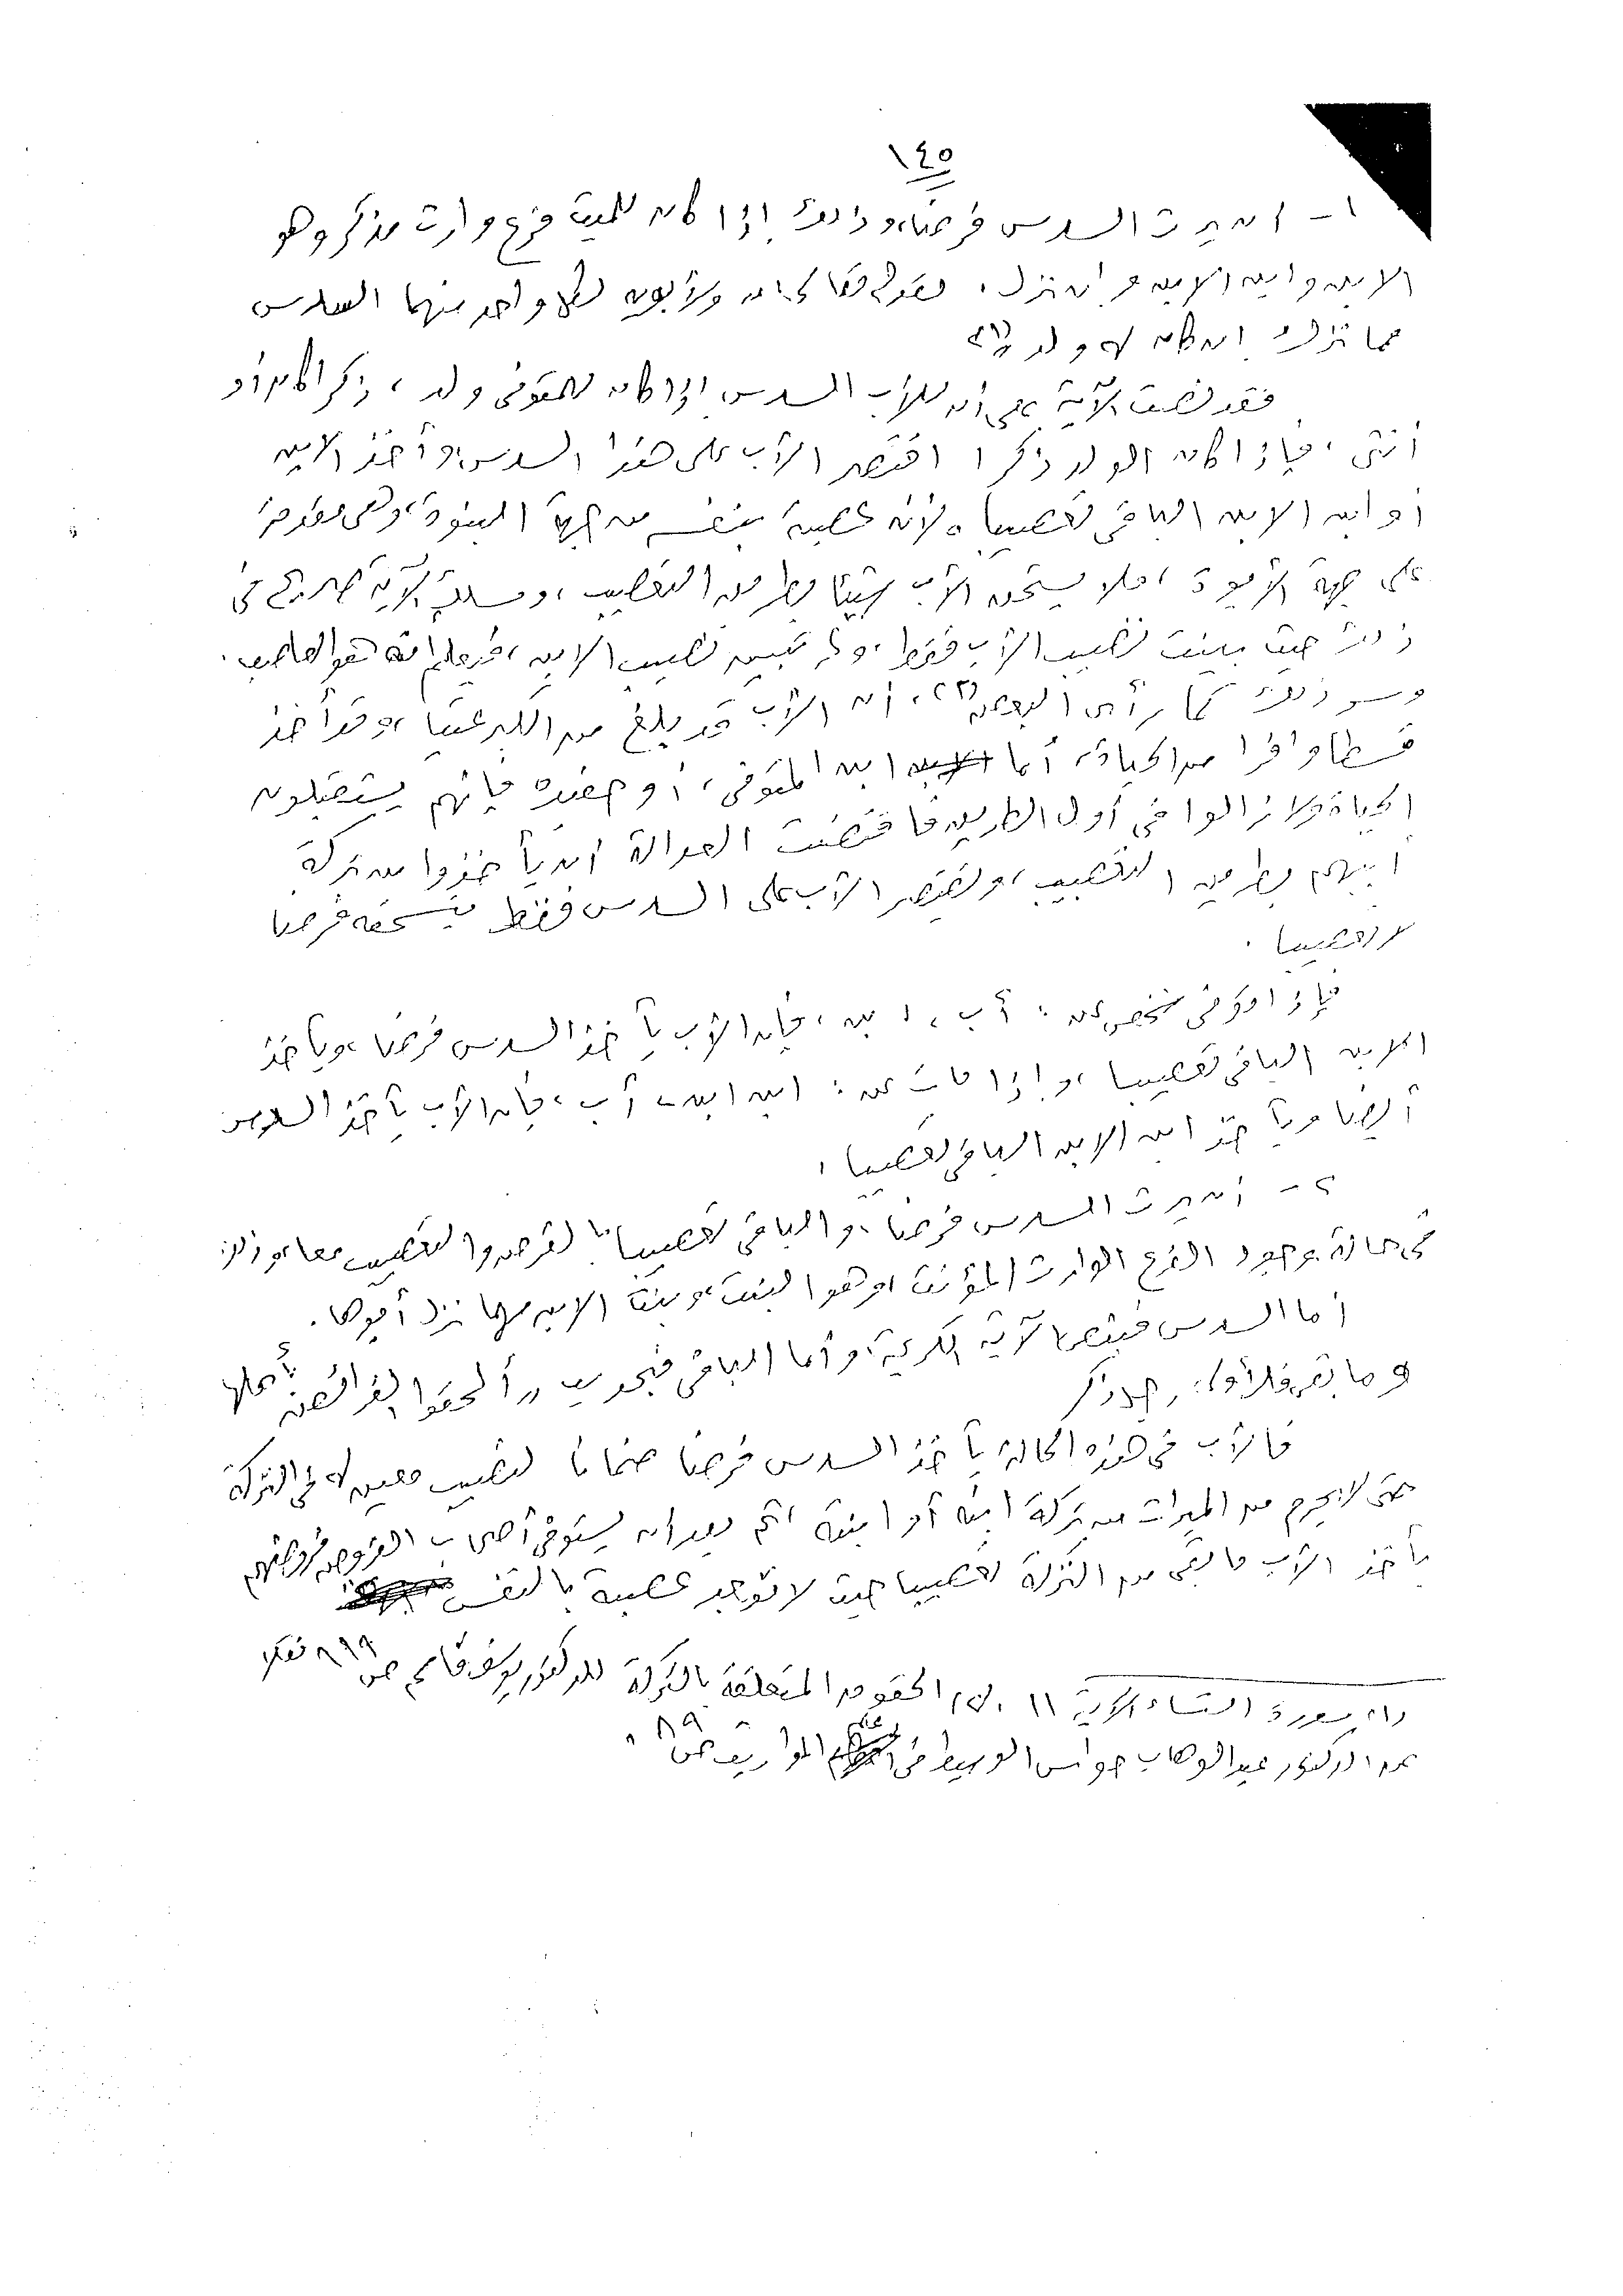 ١٤٥
١- أن يرث السدس فرضا، وذلك إذا كان للميت فرع وارث مذكر وهو
الابن وابن الابن وإن نزل، لقوله تعالى: ولأبويه لكل واحد منهما السدس
مما ترك إن كان له ولد (١)
فقد نصت الآية على أن للأب السدس إذا كان للمتوفى ولد، ذكرا كان أو
أنثى، فإذا كان الولد ذكرا اقتصر الأب على هذا السدس، وأخذ الابن
أو ابن الابن الباقى تعصيبا، لأنه عصبة بنفسه من جهة البنوة، وهى مقدمة
على جهة الأبوة، فلا يستحق الأب شيئا بطريق التعصيب، ومسلك الآية صريح فى
ذلك حيث بينت نصيب الأب فقط، ولم تبين نصيب الابن، فيعلم أنه هو العاصب.
وسر ذلك كما رأى البعض (٢)، أن الأب قد بلغ من الكبر عتيا، وقد أخذ
قسطا وافرا من الحياة، أما ابن المتوفى، أو حفيده فإنهم يستقبلون
الحياة ولا زالوا فى أول الطريق فاقتضت العدالة أن يأخذوا من تركة
أبيهم بطريق التعصيب، ويقتصر الأب على السدس فقط يستحقه فرضا
لا تعصيبا.
فإذا توفى شخص عن: أب، ابن، فإن الأب يأخذ السدس فرضا، ويأخذ
الابن الباقى تعصيبا، وإذا مات عن: ابن ابن، أب، فإن الأب يأخذ السدس
أيضا ويأخذ ابن الابن الباقى تعصيبا.
٢- أن يرث السدس فرضا، والباقى تعصيبا بالفرض والتعصيب معا، وذلك
فى حالة وجود الفرع الوارث المؤنث، وهو البنت، وبنت الابن مهما نزل أبوها.
أما السدس فبنص الآية الكريمة، وأما الباقى فبحديث "ألحقوا الفرائض بأهلها
وما بقى فلأولى رجل ذكر
فالأب فى هذه الحالة يأخذ السدس فرضا ضمانا لنصيب معين له فى التركة
حتى لا يحرم من الميراث من تركة ابنه أو ابنته، ثم بعد أن يستوفى أصحاب الفروض فروضهم
يأخذ الأب ما بقى من التركة تعصيبا حيث لا توجد عصبة بالنفس
(١) سورة النساء الآية ١١ (٢) الحقوق المتعلقة بالتركة للدكتور يوسف قاسم ص نقلا
عن الدكتور عبد الوهاب حواس الوسيط فى علم المواريث ص ٨٩.